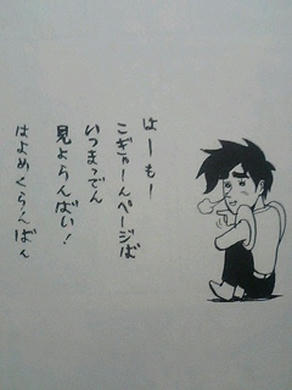 はーもー
こぎゃーんページば
いつまっでん
見よらんばい!
はよめくらんばん